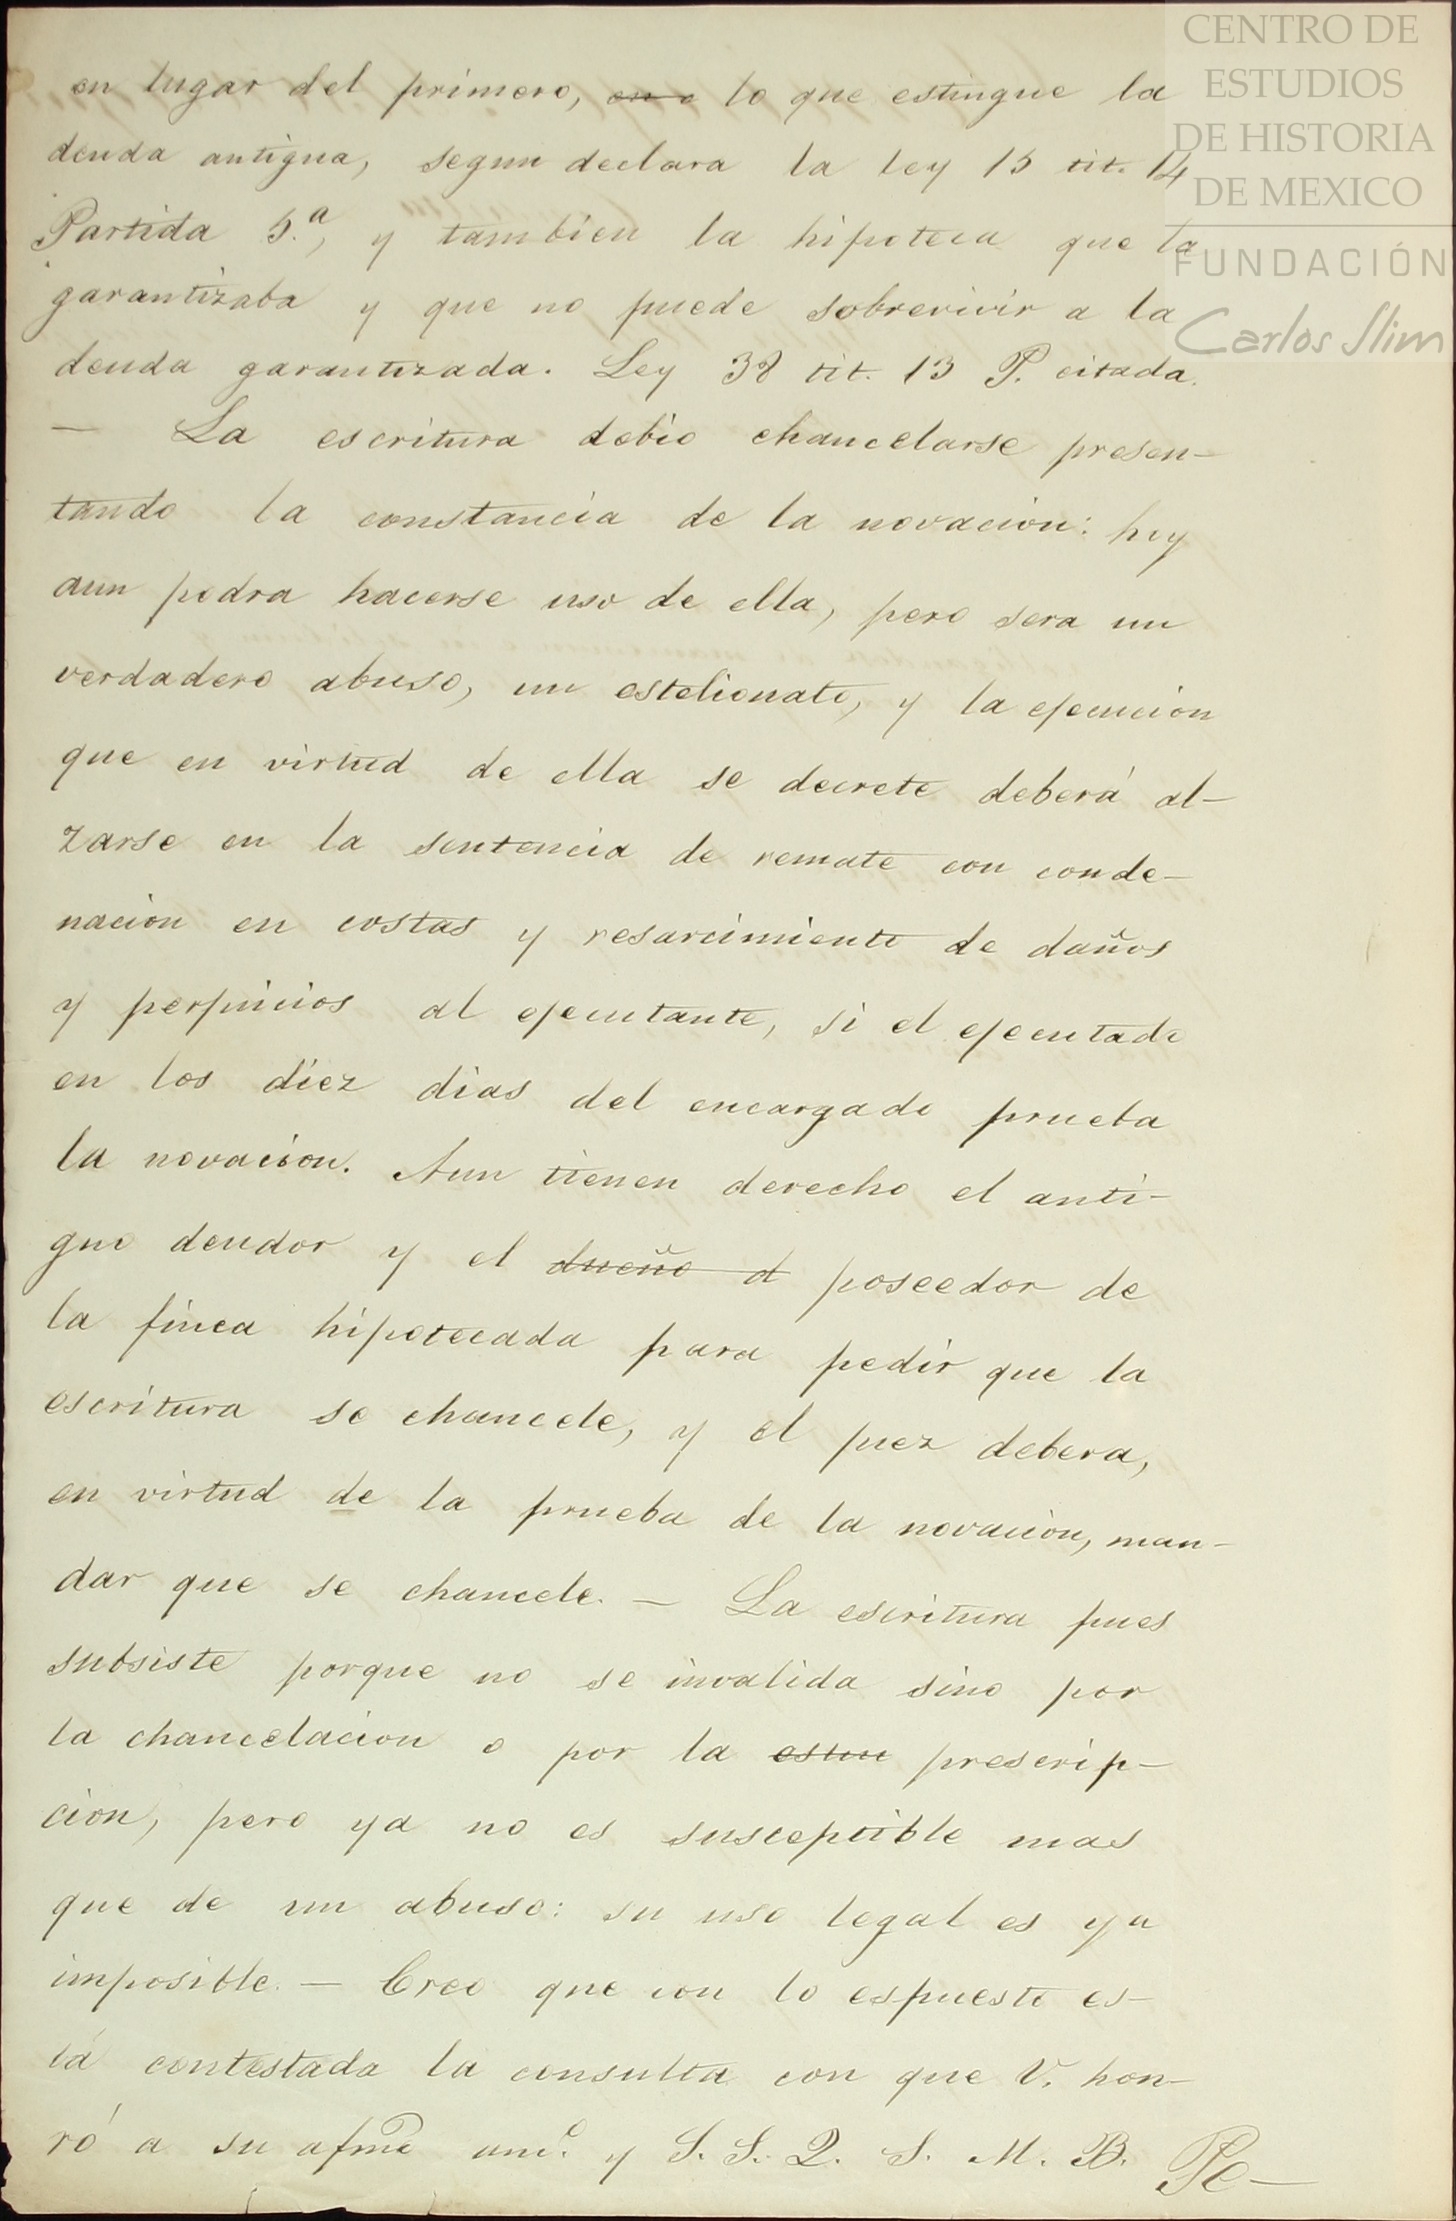 CENTRO DE
ESTUDIOS
DE HISTORIA
DE MEXICO
FUNDACIÓN
Carlos Slim
en lugar del primero, en o lo que estingue la
deuda antigua, segun declara la ley 15 tit. 14
Partida 5.ª, y tambien la hipoteca que la
garantizaba y que no puede sobrevivir a la
deuda garantizada. Ley 38 tit. 13 P. citada.
— La escritura debio chancelarse presen-
tando la constancia de la novacion: hoy
aun podra hacerse uso de ella, pero sera un
verdadero abuso, un estelionato, y la ejecucion
que en virtud de ella se decrete deberá al-
zarse en la sentencia de remate con conde-
nacion en costas y resarcimiento de daños
y perjuicios al ejecutante, si el ejecutado
en los diez dias del encargado prueba
la novacion. Aun tienen derecho el anti-
guo deudor y el dueño d poseedor de
la finca hipotecada para pedir que la
escritura se chancele, y el juez debera,
en virtud de la prueba de la novacion, man-
dar que se chancele. — La escritura pues
subsiste porque no se invalida sino por
la chancelacion o por la prescrip-
cion, pero ya no es susceptible mas
que de un abuso: su uso legal es ya
imposible. — Creo que con lo espuesto es-
tá contestada la consulta con que V. hon-
ró a su afmo amo. y S. S. Q. S. M. B. Pe-